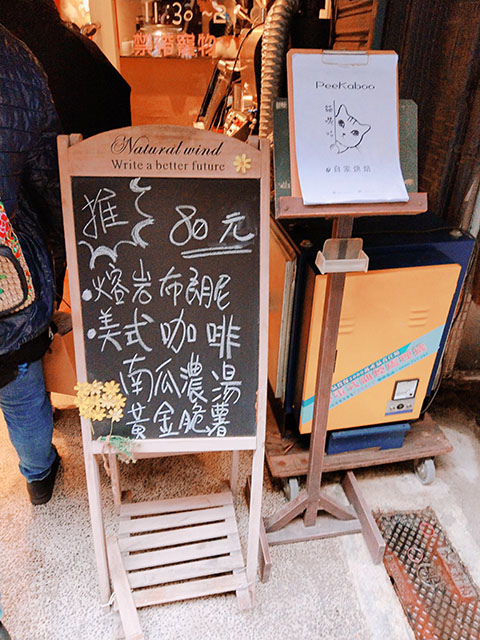 11:30~
禁帶寵物
Natural wind
Write a better future
推 80元
·熔岩布朗尼
·美式咖啡
南瓜濃湯
黃金脆薯
PeeKaboo
貓嗚咖
自家烘焙